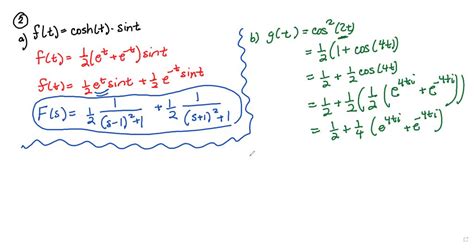 ②
a) f(t) = cosh(t) · sint
f(t) = 1/2 (e^t + e^-t) sint
f(t) = 1/2 e^t sint + 1/2 e^-t sint
F(s) = 1/2 1/((s-1)^2+1) + 1/2 1/((s+1)^2+1)
b) g(t) = cos^2(2t)
= 1/2 (1 + cos(4t))
= 1/2 + 1/2 cos(4t)
= 1/2 + 1/2 (1/2 (e^4ti + e^-4ti))
= 1/2 + 1/4 (e^4ti + e^-4ti)